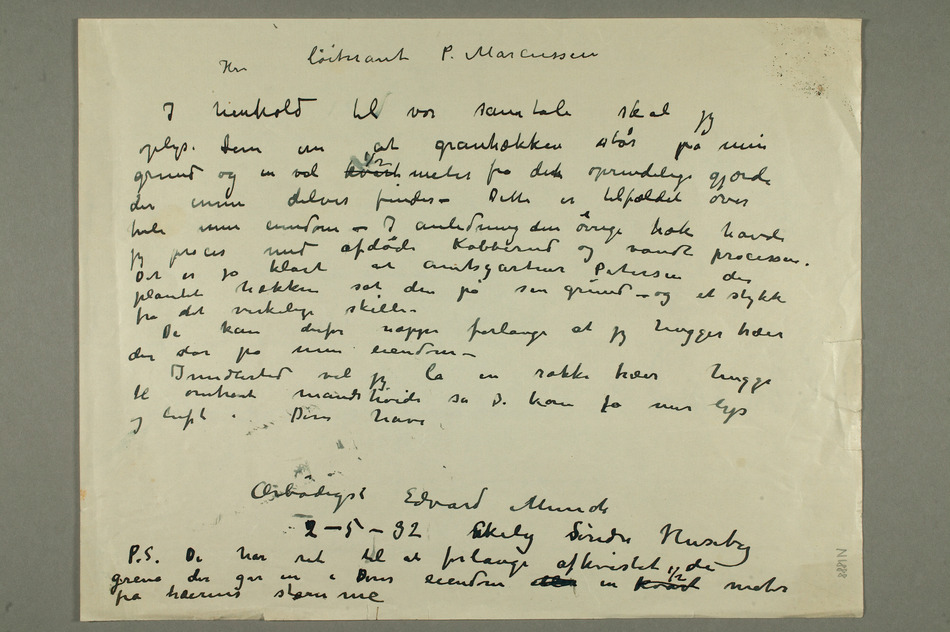 Hr løitnant P. Marcussen
I henhold til vor samtale skal jeg
oplys. Dem om at granhækken står på min
grund og en vel kvart 1/2 meter fra det oprindelige gjærde
der ennu delvis findes – Dette er tilfældet over
hele min eiendom – I anledning den øvrige hæk havde
jeg proces med afdøde Kobberrud og vandt processen.
Det er jo klart at amtsgartner Petersen der
plantet hækken sat den på sin grund – og et stykke
fra det virkelige skille –
De kan derfor neppe forlange at jeg hugger trær
der står på min eiendom –
Imidlertid vil jeg la en række trær hugge
til omtrent mandshøide så De kan få mer lys
og luft i Deres have
Ærbødigst Edvard Munch
2–5–32 Ekely Søndre Huseby
P.S. De har ret til at forlange afkvistet de
grene der går in i Deres eiendom en kvart 1/2 meter
fra trærnes stamme
N 1888